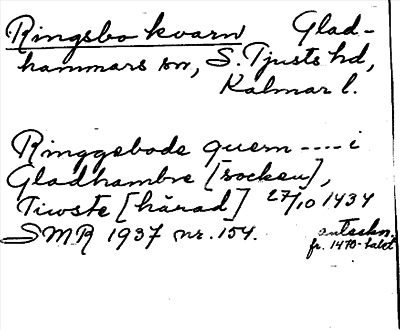 Ringsbo kvarn Glad-
hammars sn, S. Tjusts hd,
Kalmar l.
Ringgebode quern ---- i
Gladhambre [socken],
Tiwste [härad] 27/10 1434
SMR 1937 nr. 154. anteckn.
fr. 1470-talet